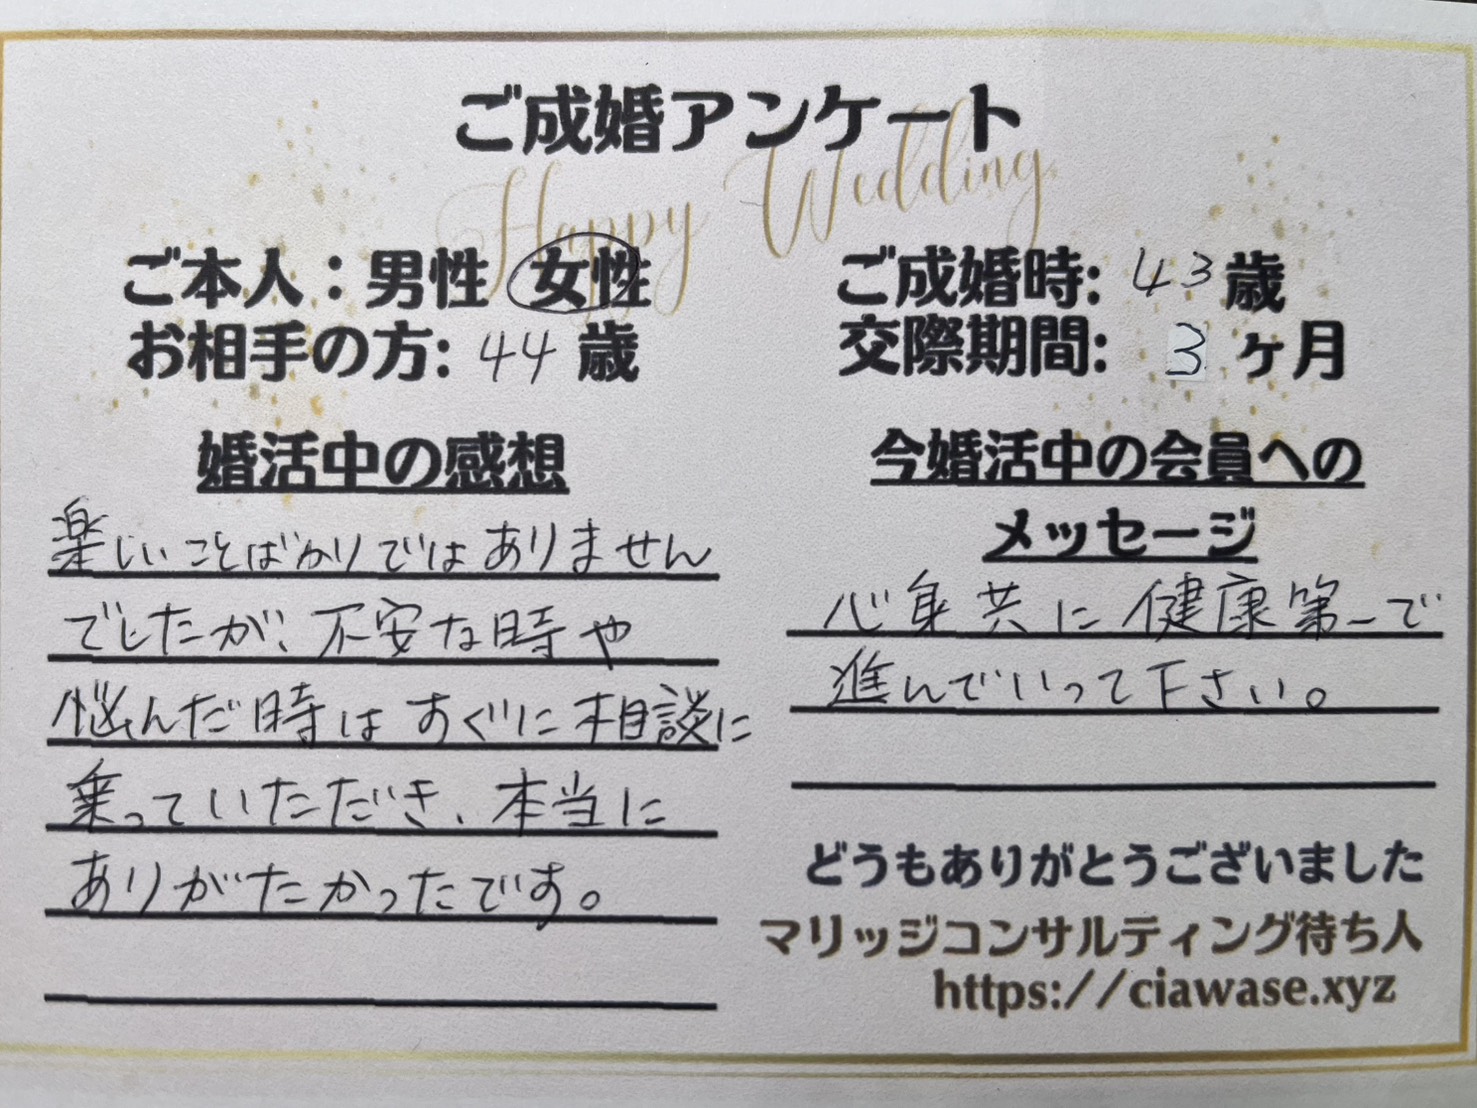 ご成婚アンケート
Happy Wedding
ご本人：男性 女性
お相手の方: 44 歳
ご成婚時: 43 歳
交際期間: 3 ヶ月
婚活中の感想
楽しいことばかりではありません
でしたが、不安な時や
悩んだ時はすぐに相談に
乗っていただき、本当に
ありがたかったです。
今婚活中の会員への
メッセージ
心身共に健康第一で
進んでいって下さい。
どうもありがとうございました
マリッジコンサルティング待ち人
https://ciawase.xyz